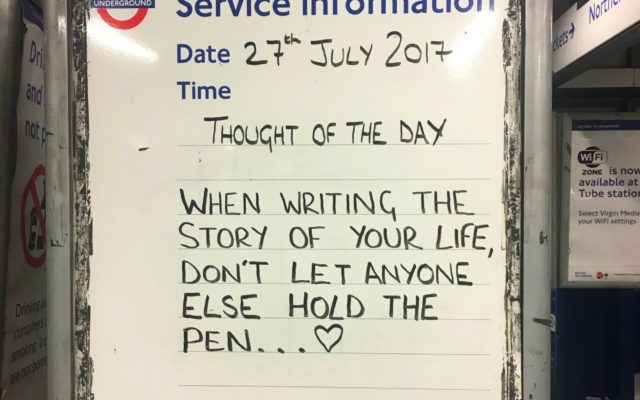 UNDERGROUND
Service Information
Date 27th JULY 2017
Time
THOUGHT OF THE DAY
WHEN WRITING THE
STORY OF YOUR LIFE,
DON'T LET ANYONE
ELSE HOLD THE
PEN...♡
and
not
Drinking
are not
London Underground
WiFi
ZONE is now
available at
Tube station
Select Virgin Media
your WiFi settings